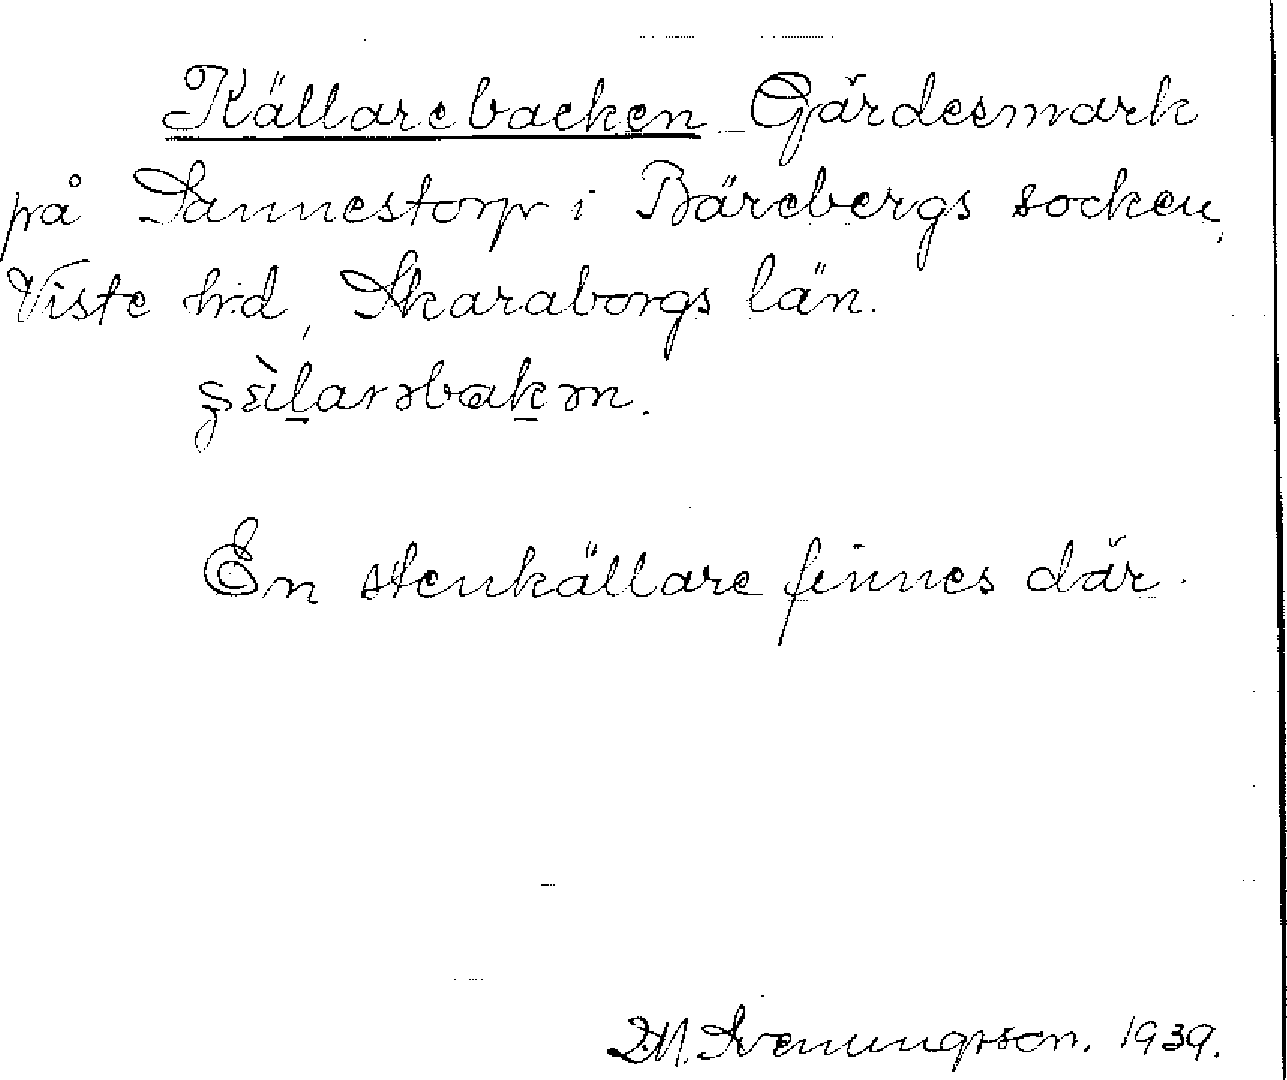 Källarebacken Gärdesmark
på Sannestorp i Bärebergs socken,
Viste hd, Skaraborgs län.
En stenkällare finnes där.
Svenungsson. 1939.